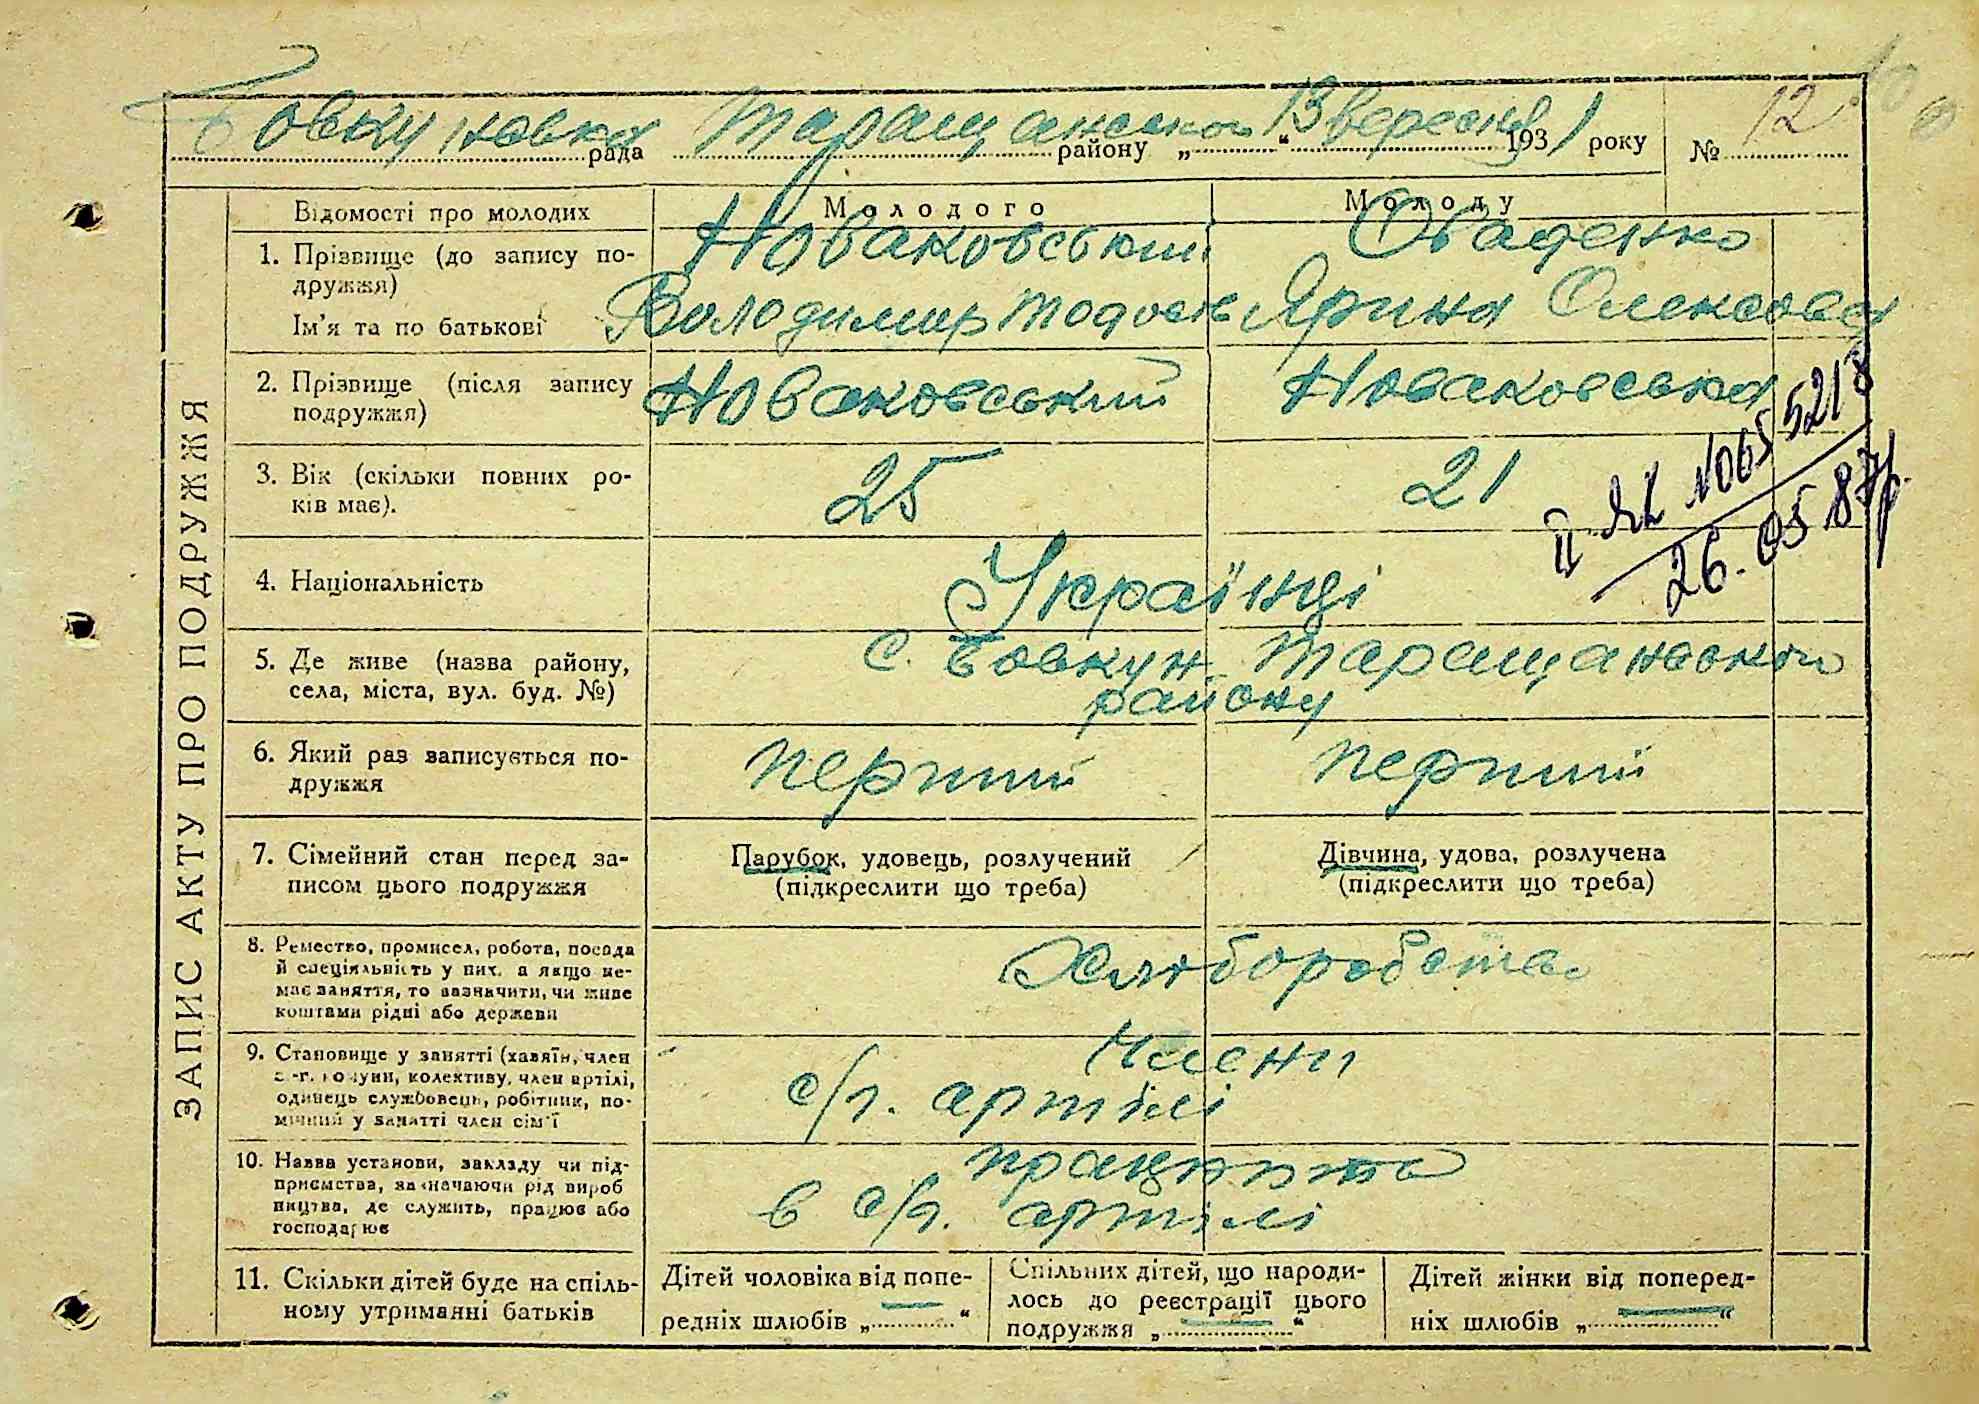 Бовкунівська рада Таращанського району „13" вересня 1931 року № 12
ЗАПИС АКТУ ПРО ПОДРУЖЖЯ
Відомості про молодих Молодого Молоду
1. Прізвище (до запису по- Новаковський Оваденко
дружжя)
Ім'я та по батькові Володимир Тодосів Ярина Олексова
2. Прізвище (після запису Новаковський Новаковська
подружжя)
3. Вік (скільки повних ро- 25 21
ків має).
4. Національність Українці
5. Де живе (назва району, с. Бовкун Таращанського
села, міста, вул. буд. №) району
6. Який раз записується по- перший перший
дружжя
7. Сімейний стан перед за- Парубок, удовець, розлучений Дівчина, удова, розлучена
писом цього подружжя (підкреслити що треба) (підкреслити що треба)
8. Ремество, промисел, робота, посада Хліборобство
й спеціяльність у них, а якщо не-
має заняття, то зазначити, чи живе
коштами рідні або держави
9. Становище у занятті (хазяїн, член члени
с.-г. комуни, колективу, член артілі, с/г. артілі
одинець службовець, робітник, по-
мічний у занятті член сім'ї
10. Назва установи, закладу чи під- працюють
приємства, зазначаючи рід вироб в с/г. артілі
ництва, де служить, працює або
господарює
11. Скільки дітей буде на спіль-
ному утриманні батьків
Дітей чоловіка від попе-
редніх шлюбів „ — "
Спільних дітей, що народи-
лось до реєстрації цього
подружжя „ — "
Дітей жінки від поперед-
ніх шлюбів „ — "
26.05.87р.